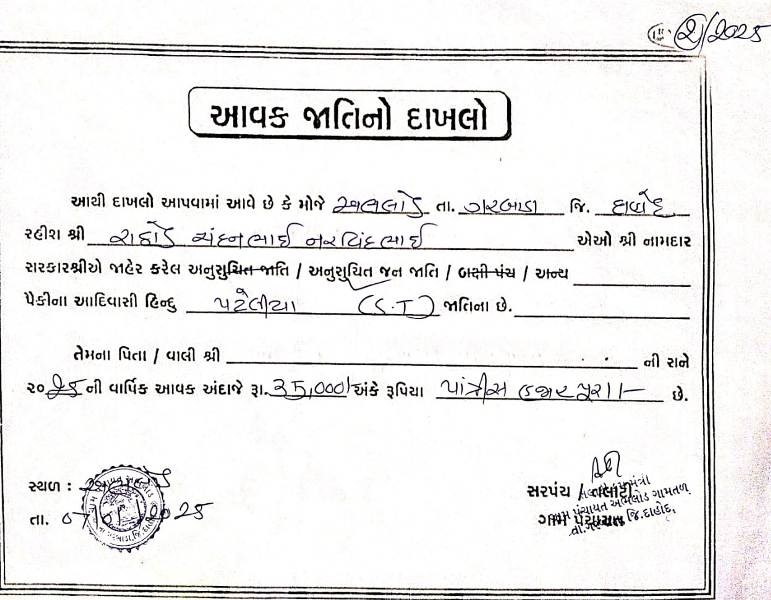 2/2025
આવક જાતિનો દાખલો
આથી દાખલો આપવામાં આવે છે કે મોજે અભલોડ તા. ગરબાડા જિ. દાહોદ
રહીશ શ્રી રાઠોડ ચંદનભાઈ નરસિંહભાઈ એઓ શ્રી નામદાર
સરકારશ્રીએ જાહેર કરેલ અનુસુચિત જાતિ / અનુસુચિત જન જાતિ / બક્ષી પંચ / અન્ય
પૈકીના આદિવાસી હિન્દુ પટેલીયા (S.T) જાતિના છે.
તેમના પિતા / વાલી શ્રી ની રાને
૨૦ ની વાર્ષિક આવક અંદાજે રૂા. 35,000/ અંકે રૂપિયા પાંત્રીસ હજાર પુરા/- છે.
સ્થળ :
તા. 2025
સરપંચ / તલાટી
ગામ પંચાયત અભલોડ ગામતળ
તા.ગરબાડા જિ.દાહોદ